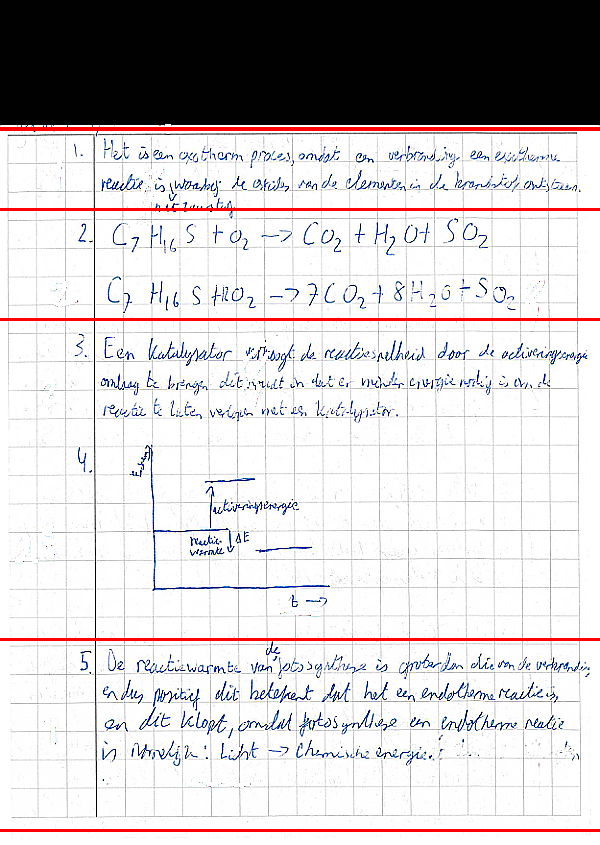 1. Het is een exotherm proces, omdat een verbranding een exotherme
reactie is, waarbij de oxides van de elementen in de brandstof ontstaan.
2. C7 H16 S + O2 → CO2 + H2O + SO2
C7 H16 S + O2 → 7 CO2 + 8 H2O + SO2
3. Een katalysator verhoogt de reactiesnelheid door de activeringsenergie
omlaag te brengen dit houdt in dat er minder energie nodig is om de
reactie te laten verlopen met een katalysator.
4.
activeringsenergie
reactie- ΔE
warmte
t →
de
5. De reactiewarmte van fotosynthese is groter dan die van de verbranding
en dus positief dit betekent dat het een endotherme reactie is,
en dit klopt, omdat fotosynthese een endotherme reactie
is namelijk: Licht → Chemische energie.